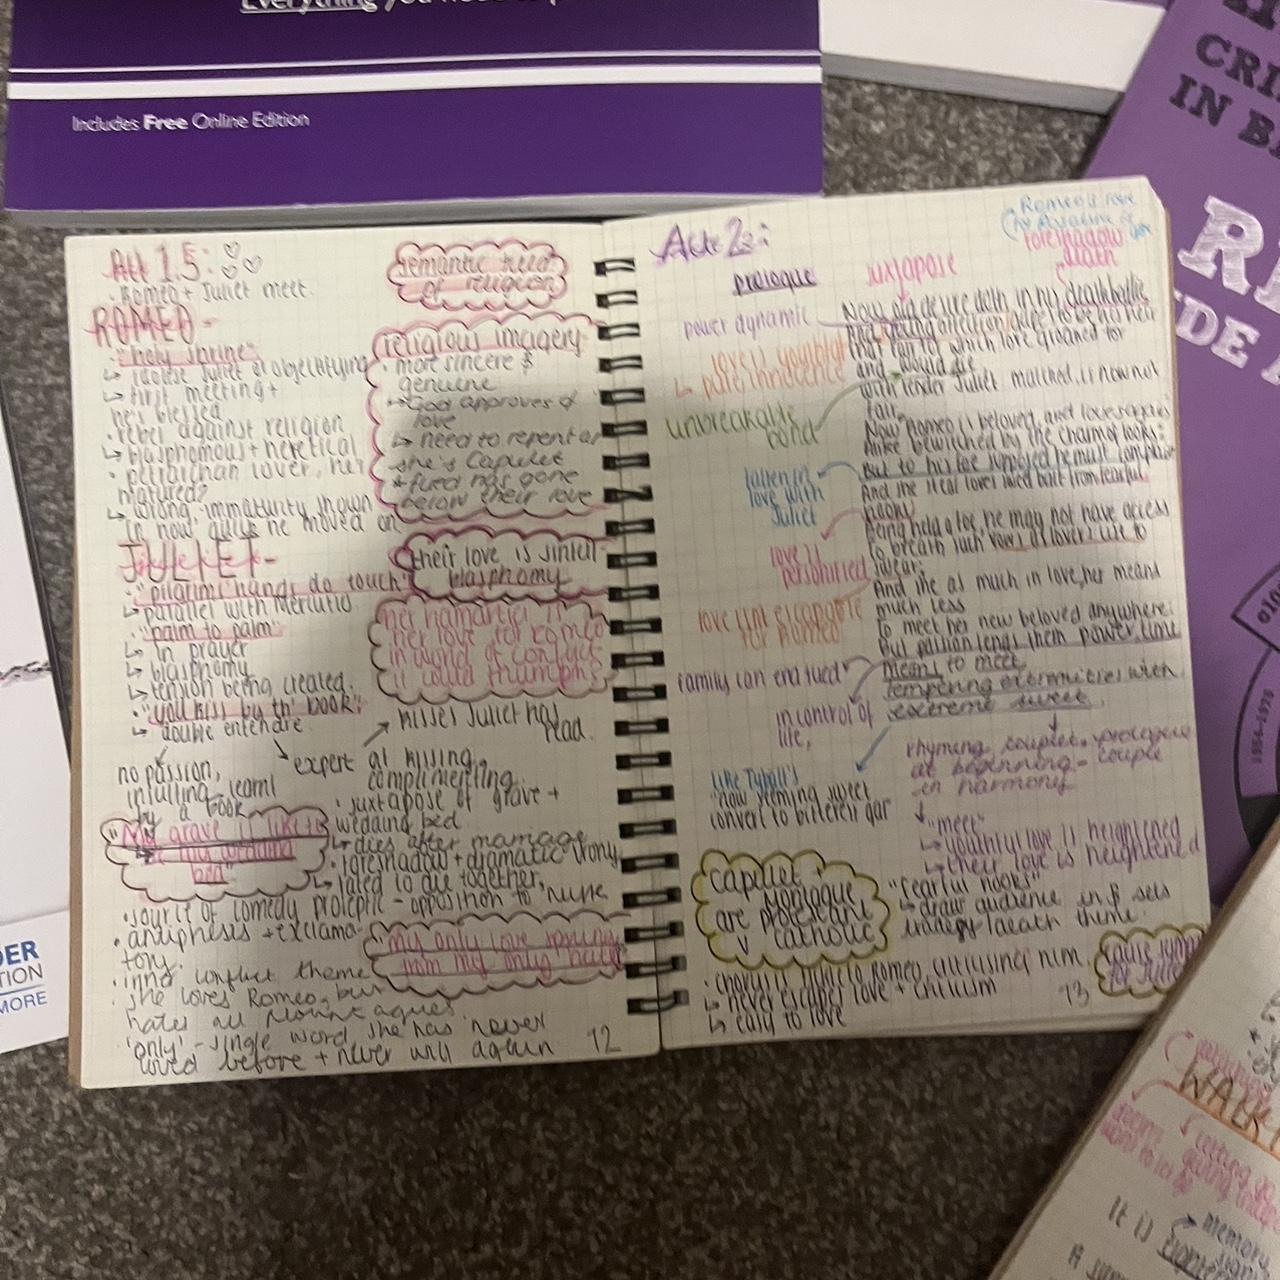 Everything you need to
Includes Free Online Edition
CRI
IN B
Act 1.5:
· Romeo + Juliet meet.
ROMEO -
· "holy shrine"
↳ first meeting +
he's blessed
· rebel against religion
↳ blasphomous + heretical
· petrarchan lover, he's
matured?
↳ wrong - immaturity shown
in how quick he moved on
semantic field
of religion
religious imagery
· more sincere &
genuine
→ God approves of
love
↳ need to repent as
she's Capulet
* fued has gone
below their love
JULIET -
· "pilgrims' hands do touch"
↳ parallel with Mercutio
· "palm to palm"
↳ in prayer
↳ blasphomy
↳ tension being created.
· "you kiss by th' book".
↳ double entendre
their love is sinfull -
blasphomy
her love for Romeo
in world of conflict
it could triumph?
→ kisses Juliet has
read.
no passion,
insulting - learnt
by a book
expert at kissing,
complimenting.
"My grave is like
my wedding
bed"
· juxtapose of grave +
wedding bed
↳ dies after marriage
· foreshadow + dramatic irony
↳ fated to die together,
· source of comedy proleptic - opposition to nurse
· antiphesis + exclama-
tory.
· inner conflict theme
· she loves Romeo, but
hates all Mountagues.
· 'only' - single word she has never
loved before + never will again
"My only love sprung
from my only hate"
12
Act 2:
prologue
juxtapose
Romeo's love
foreshadow
death
power dynamic
love is youthful
↳ pure, innocence
unbreakable
bond
fallen in
love with
Juliet
love is
personified
love isnt escapable
for Romeo
family can end fued
in control of
life,
like Tybalt's
"now seeming sweet
convert to bitteren gar
Now old desire doth in his deathbed lie
And young affection gapes to be his heir
That fair for which love groaned for
and would die
with tender Juliet matched, is now not
fair.
Now Romeo is beloved, and loves again
Alike bewitched by the charm of looks:
But to his foe supposed he must complain
And she steal loves sweet bait from fearful
hooks.
Being held a foe, he may not have access
To breath such vows as lovers use to
swear;
And she as much in love, her means
much less
To meet her new beloved anywhere:
But passion lends them power, time
means to meet
Tempering extremities with
extreme sweet.
rhyming couplet - prologue
at beginning - couple
in harmony
"meet"
↳ youthful love is heightened
↳ their love is heightened
"fearful hooks"
↳ draw audience in & sets
tragedy/death theme.
Capulet +
Montague
are protestant
v catholic
· chorus is bitter to Romeo, criticising him.
↳ never escapes love + criticism
↳ easy to love
13
1954-1975
DER
TION
MORE
WALK
memory
it is